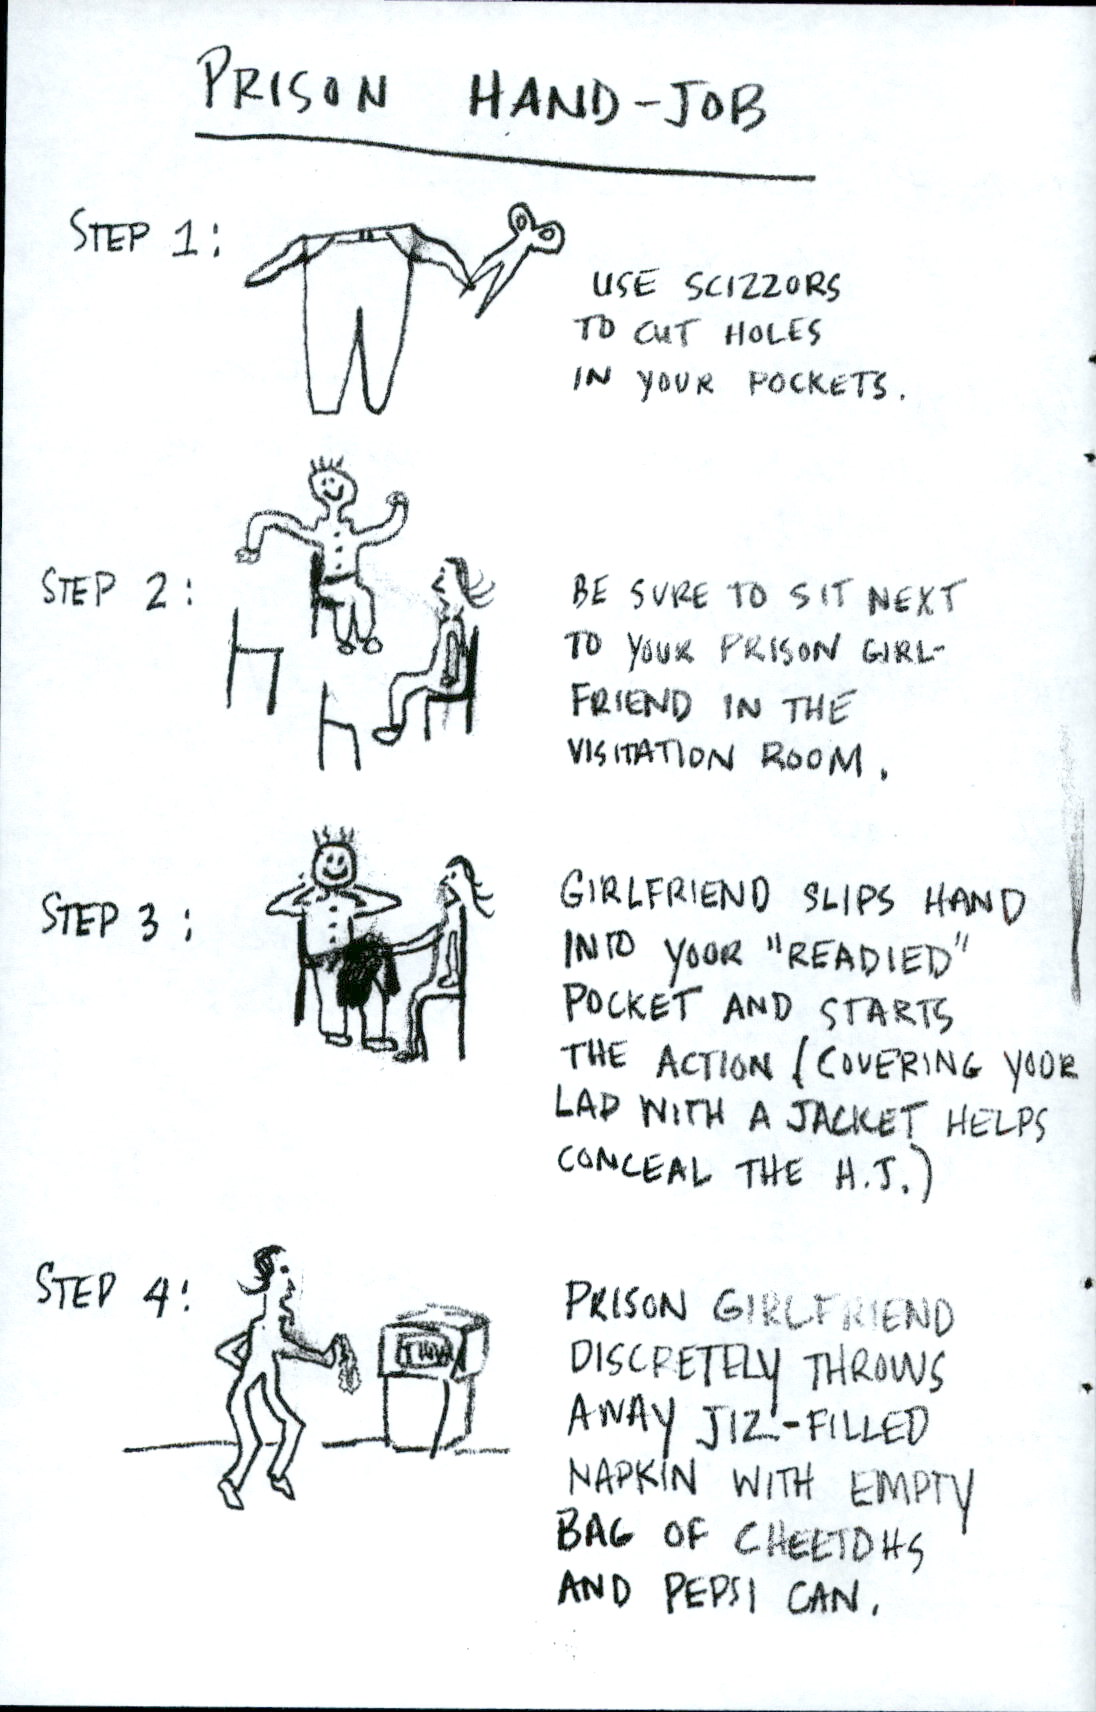 PRISON HAND-JOB
STEP 1:
USE SCIZZORS
TO CUT HOLES
IN YOUR POCKETS.
STEP 2:
BE SURE TO SIT NEXT
TO YOUR PRISON GIRL-
FRIEND IN THE
VISITATION ROOM.
STEP 3:
GIRLFRIEND SLIPS HAND
INTO YOUR "READIED"
POCKET AND STARTS
THE ACTION (COVERING YOUR
LAP WITH A JACKET HELPS
CONCEAL THE H.J.)
STEP 4:
PRISON GIRLFRIEND
DISCRETELY THROWS
AWAY JIZ-FILLED
NAPKIN WITH EMPTY
BAG OF CHEETOHS
AND PEPSI CAN.